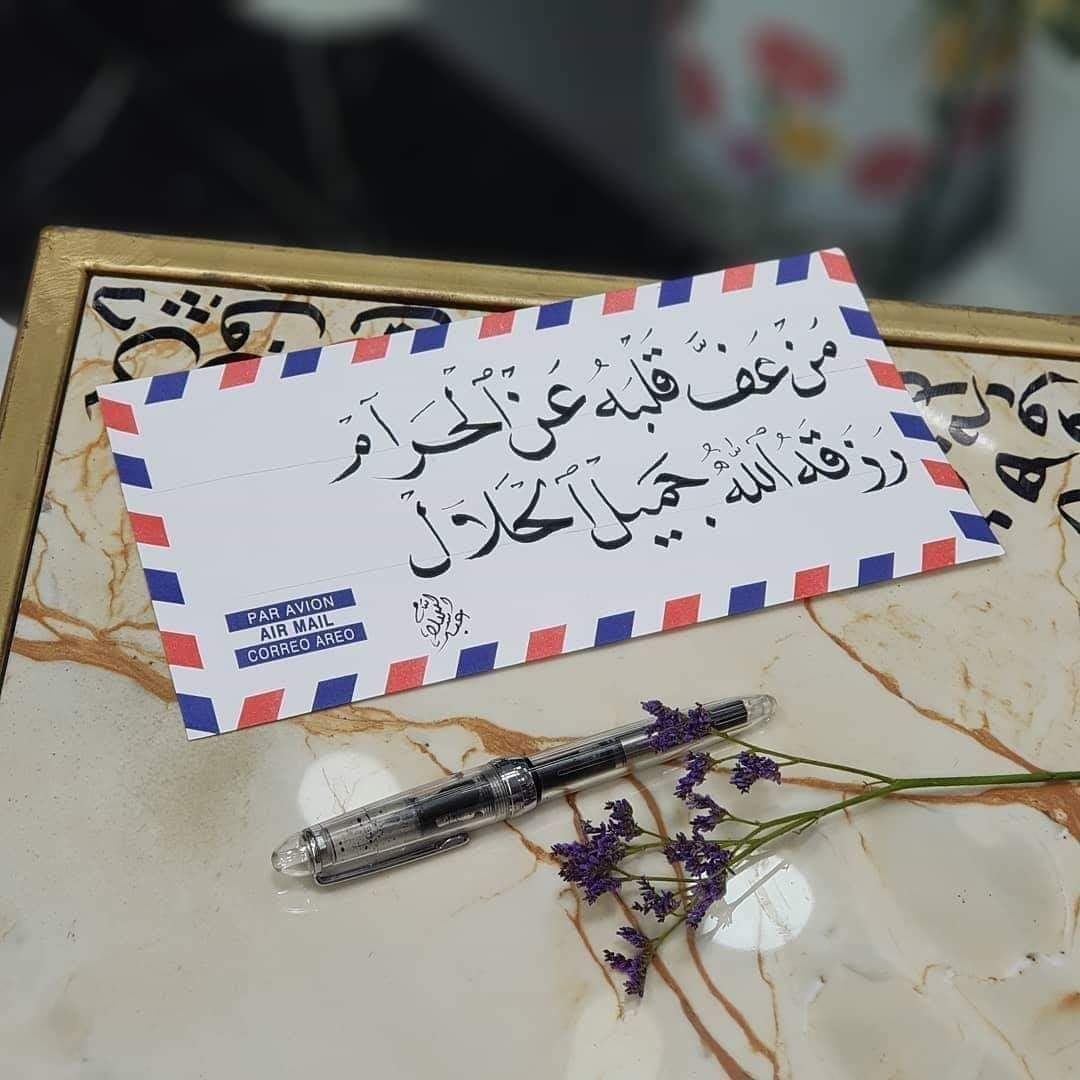 مَنْ عَفَّ قَلْبَهُ عَنْ ٱلْحَرَامْ
رَزَقَهُ ٱللَّهُ جَمِيلْ ٱلْحَلَالْ
PAR AVION
AIR MAIL
CORREO AREO